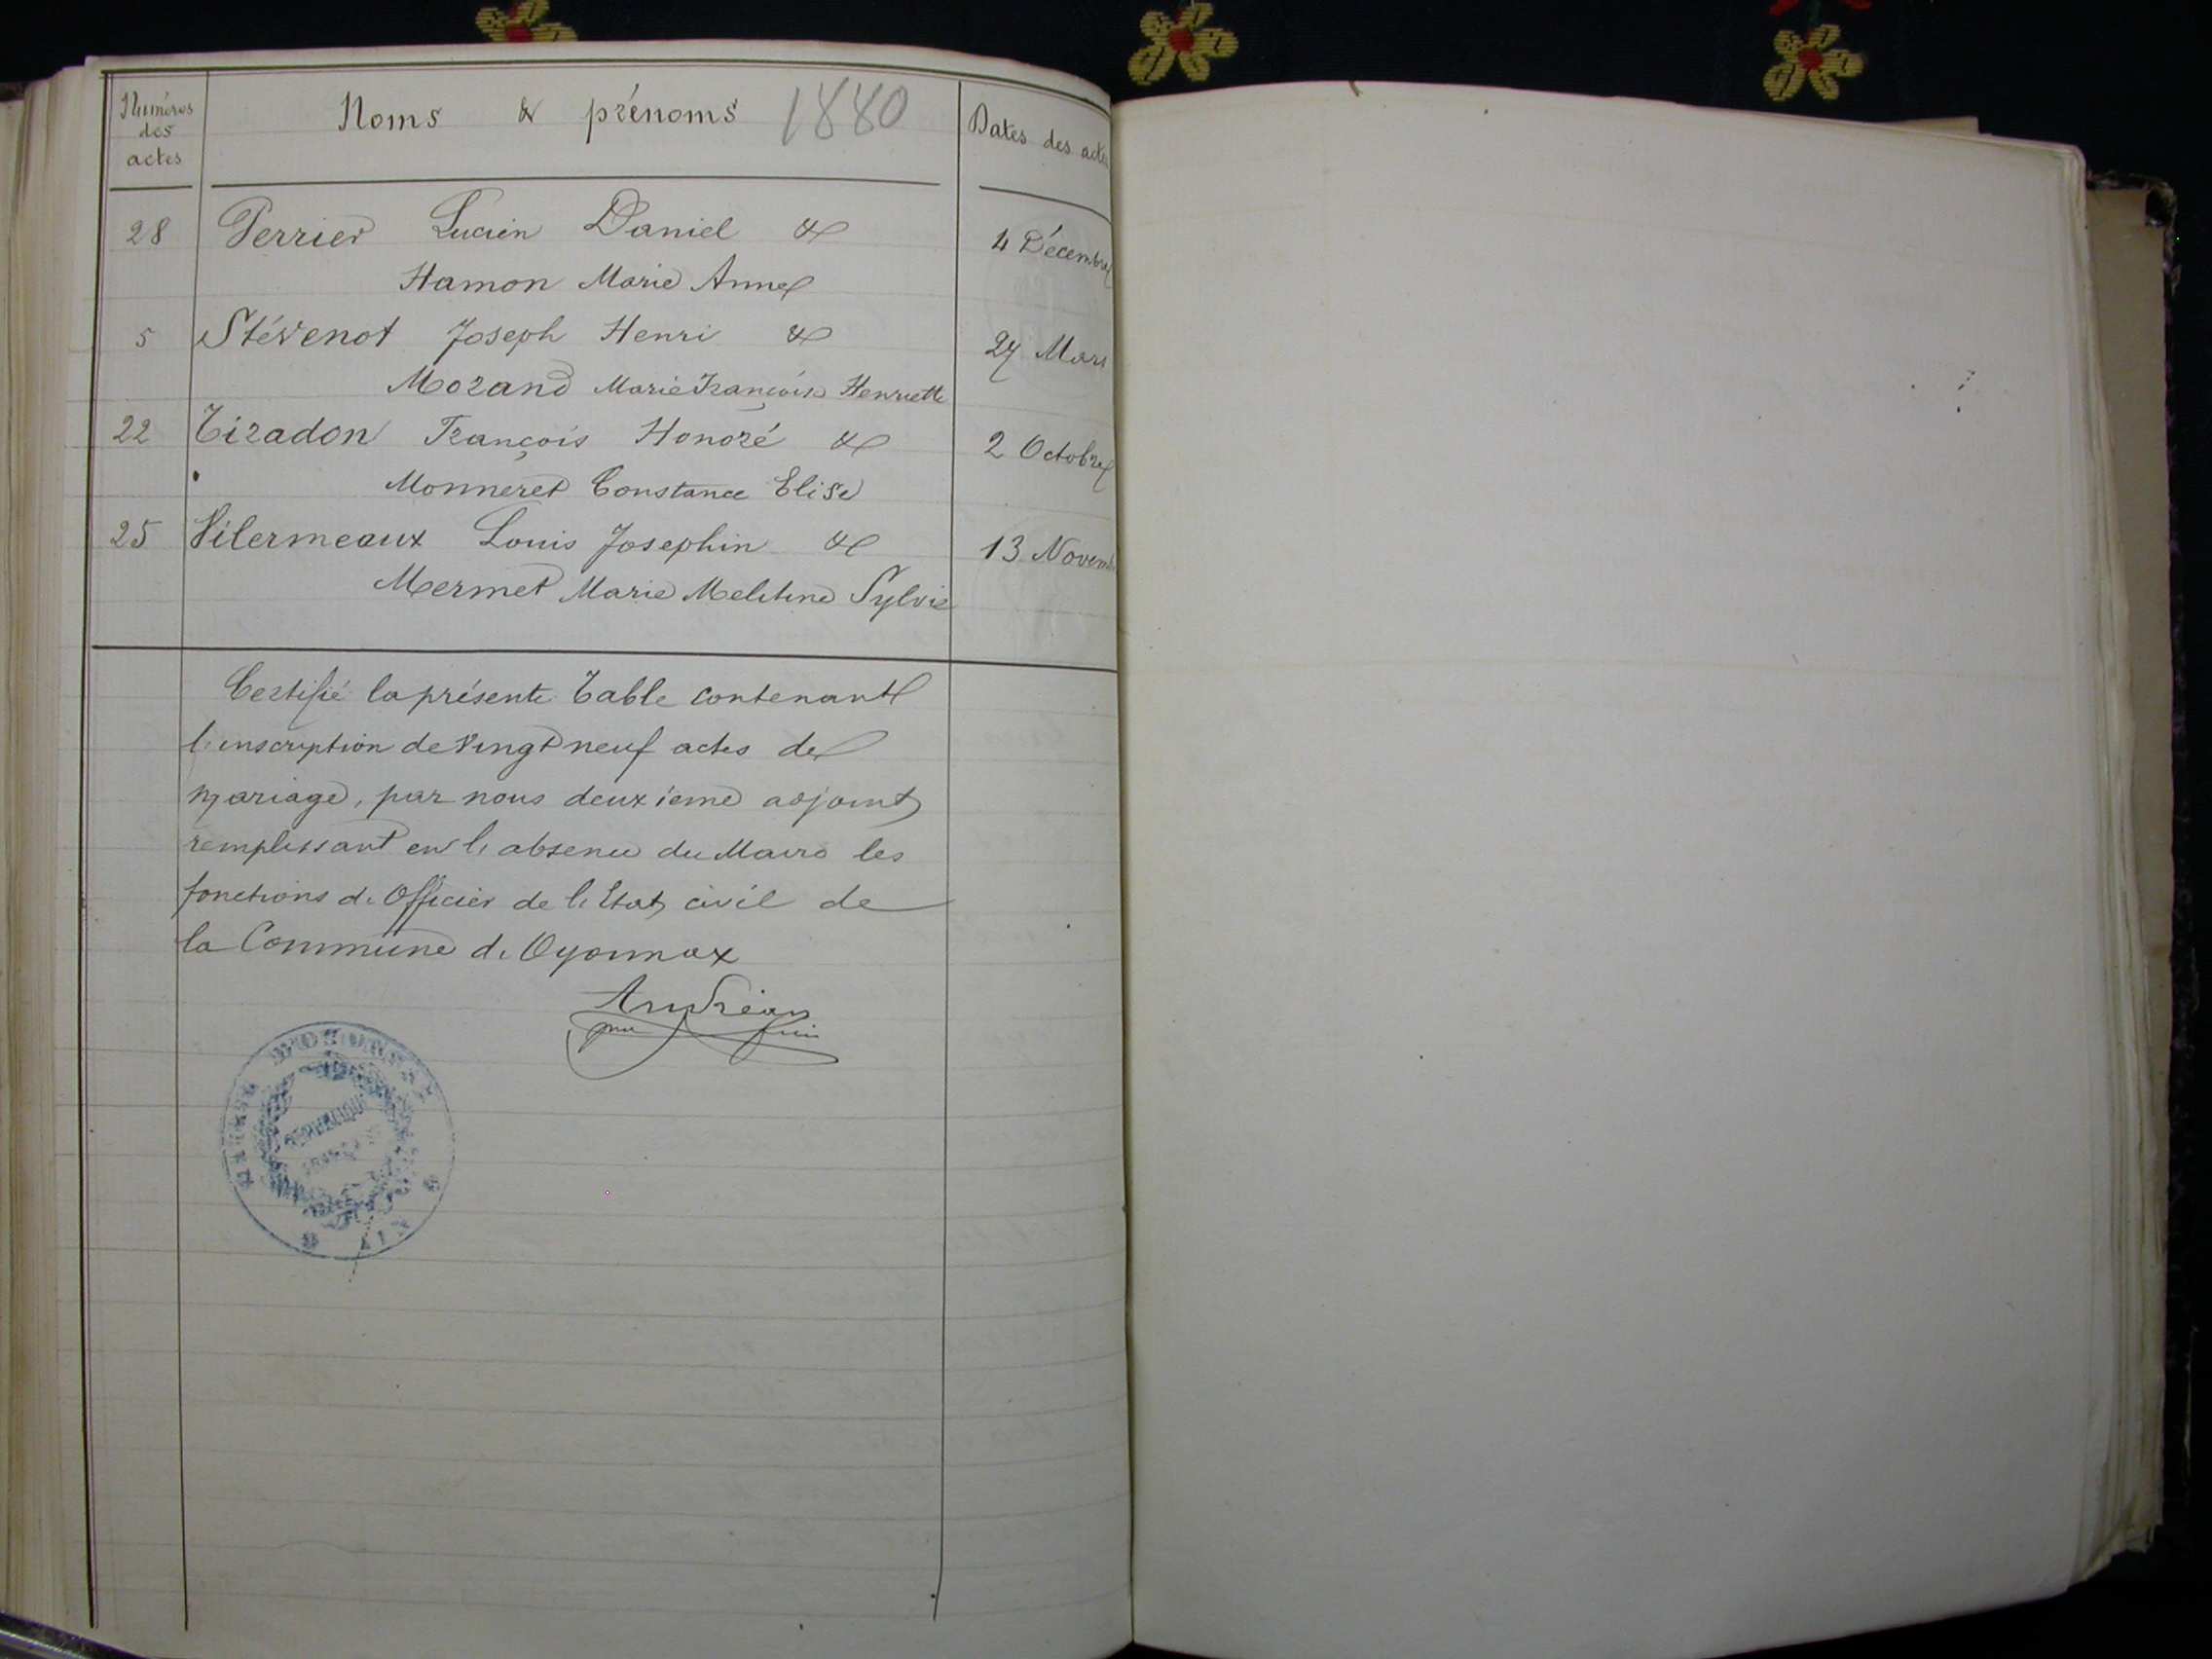 Numéros des actes
Noms & prénoms 1880
Dates des actes
28 Perrier Lucien Daniel & 4 Décembre
Hamon Marie Anne
5 Stévenot Joseph Henri & 27 Mars
Morand Marie Françoise Henriette
22 Tiradon François Honoré & 2 Octobre
Monneret Constance Elise
25 Vilermeaux Louis Josephin & 13 Novemb
Mermet Marie Melitine Sylvie
Certifié la présente Table contenant
l'inscription de Vingt neuf actes de
mariage, par nous deuxième adjoint
remplissant en l'absence du Maire les
fonctions d'Officier de l'Etat civil de
la Commune d'Oyonnax
Andréan
MAIRIE D'OYONNAX
REPUBLIQUE
AIN